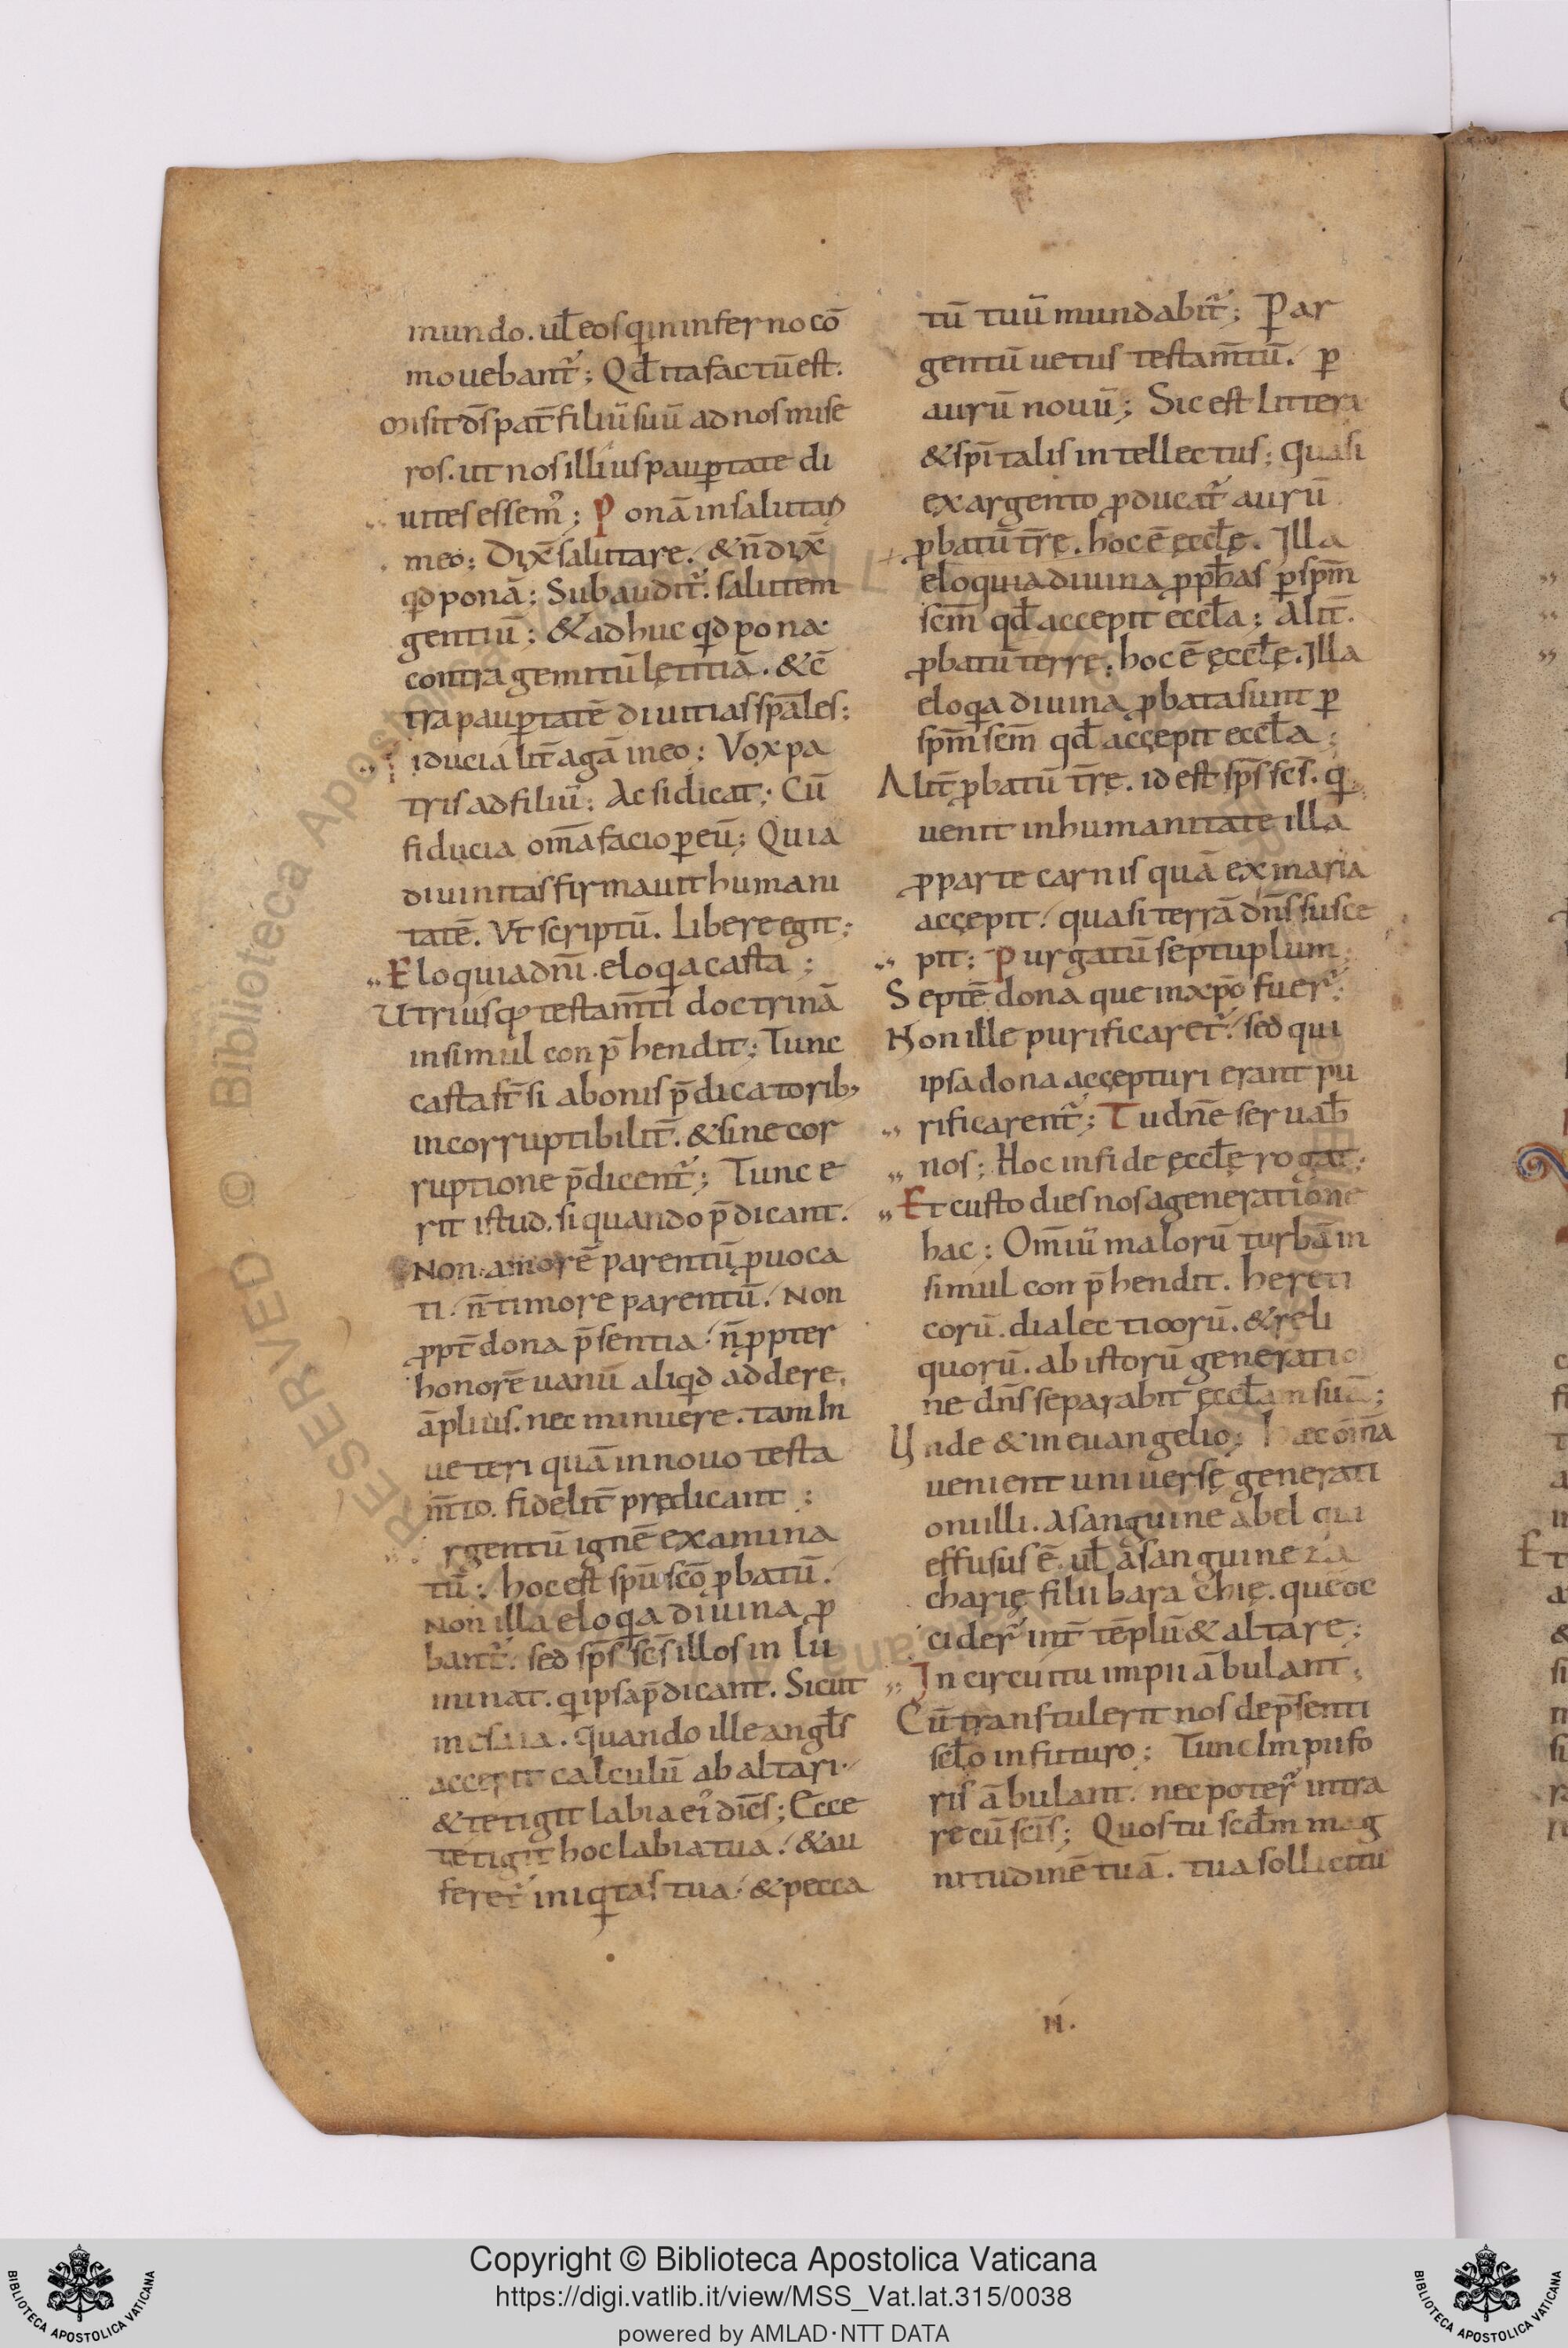 mundo. ul̄ eos qi in inferno cō
mouebant̄; Qđ ita factū est.
Misit d̄s pat̄ filiū suū ad nos mise
ros. ut nos illius paup̲tate di
uites essem᾽; Ponā in salutari
meo; Dix̄ salutare. & n̄ dix̄
qd ponā; Subaudit̄. salutem
gentiū; & adhuc qd pona
contra gemitū lętitiā. & c̄
tra paup̲tatē diuitias sp̄ales;
iducia lit̄ agā in eo; Vox pa
tris ad filiū; Ac si dicat; Cū
fiducia om̄a facio p̲ eū; Quia
diuinitas firmauit humani
tatē. Vt scriptū. Libere egit;
Eloquia dn̄i. eloqia casta;
Utriusq; testam̄ti doctrinā
insimul conp̄hendit; Tunc
casta st̄ si a bonis p̄dicatorib;
incorruptibilit̄. & sine cor
ruptione p̄dicent̄; Tunc e
rit istud. si quando p̄dicant.
Non amorē parentū ꝓuoca
ti. n̄ timore parentū. Non
ꝓpt̄ dona p̄sentia. n̄ ꝓpter
honorē uanū aliqid addere.
āplius. nec minuere. tam In
ueteri quā in nouo testa
m̄to. fidelit̄ prędicant;
rgentū ignē examina
tū; hoc est sp̄u sc̄o ꝓbatū.
Non illa eloqia diuina ꝓ
bant̄. sed sp̄s sc̄s illos in lu
minat. qi ipsa p̄dicant. Sicut
in esaia. quando ille angl̄s
accepit calculū ab altari.
& tetigit labia ei᾽ dic̄s; Ecce
tetigit hoc labia tua. & au
feret̄ iniqitas tua. & pecca
tū tuū mundabit̄; P̲ ar
gentū uetus testam̄tū. p̲
aurū nouū; Sic est littera
& sp̄italis intellectus; quasi
ex argento ꝓducat̄ aurū
ꝓbatū t̄rę. hoc ē ęccl̄ę. Illa
eloquia diuina ꝓ pph̄as p̲ sp̄m
sc̄m qđ accepit eccl̄a; Alit̄.
ꝓbatū terrę. hoc ē ęccl̄ę. Illa
eloqia diuina ꝓbata sunt p̲
sp̄m sc̄m qđ accępit eccl̄a;
Alit̄ ꝓbatū t̄rę. id est sp̄s sc̄s. qi
uenit in humanitate illa
ꝓ parte carnis quā ex maria
accępit. quasi terrā dn̄s susce
pit; Purgatū septuplum
Septē dona que in xp̄o fuer̄;
Non ille purificaret̄. sed qui
ipsa dona accępturi erant pu
rificarent̄; Tu dn̄e seruab̄
nos; Hoc in fide ęccl̄ę rogat;
Et custodies nos a generatione
hac; Om̄iū malorū turbā in
simul conp̄hendit. hereti
corū. dialecticorū. & reli
quorū. ab istorū generatio
ne dn̄s separabit ęccl̄am suā;
Unde & in euangelio; Haec om̄a
uenient uniuersę generati
oni illi. a sanguine abel qui
effusus ē. ul̄ a sanguine za
charię filii barachię. quē oc
cider̄ int̄ tēplū & altare;
In circuitu impii ābulant.
Cū transtulerit nos de p̄senti
sc̄lo in futuro; Tunc Impii fo
ris ābulant. nec poter̄ intra
re cū sc̄is; Quos tu scd̄m mag
nitudinē tuā. tua sollicitu
II.
Copyright © Biblioteca Apostolica Vaticana
https://digi.vatlib.it/view/MSS_Vat.lat.315/0038
powered by AMLAD·NTT DATA
BIBLIOTECA APOSTOLICA VATICANA
BIBLIOTECA APOSTOLICA VATICANA